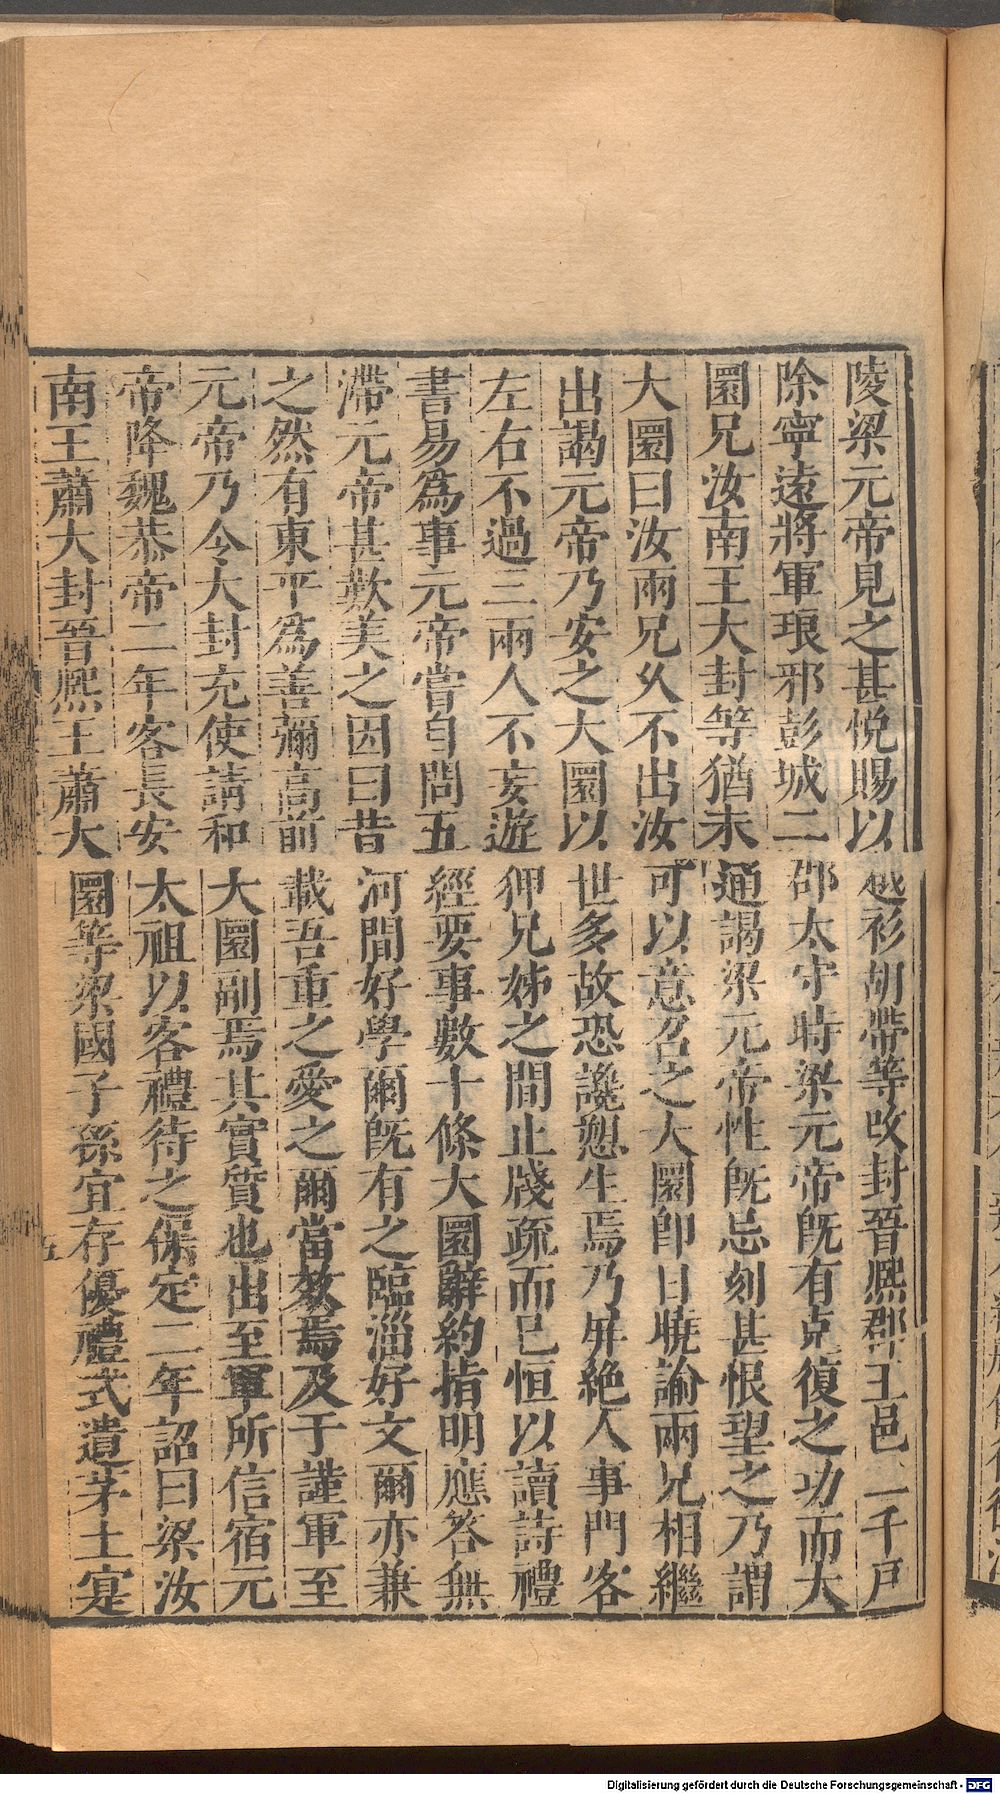 陵梁元帝見之甚悅賜以越衫胡帶等改封晉熙郡王邑二千戶
除寧遠將軍琅邪彭城二郡太守時梁元帝既有克復之功而大
圜兄汝南王大封等猶未通謁梁元帝性既忌刻甚恨望之乃謂
大圜曰汝兩兄久不出汝可以意召之大圜即日曉諭兩兄相繼
出謁元帝乃安之大圜以世多故恐讒愬生焉乃屏絕人事門客
左右不過三兩人不妄遊狎兄姊之間止牋疏而已恒以讀詩禮
書易為事元帝嘗自問五經要事數十條大圜辭約指明應答無
滯元帝甚歎美之因曰昔河間好學爾既有之臨淄好文爾亦兼
之然有東平為善彌高前載吾重之愛之爾當效焉及于謹軍至
元帝乃令大封充使請和大圜副焉其實質也出至軍所信宿元
帝降魏恭帝二年客長安太祖以客禮待之保定二年詔曰梁汝
南王蕭大封晉熙王蕭大圜等梁國子孫宜存優禮式遺茅土寔
五
Digitalisierung gefördert durch die Deutsche Forschungsgemeinschaft - DFG